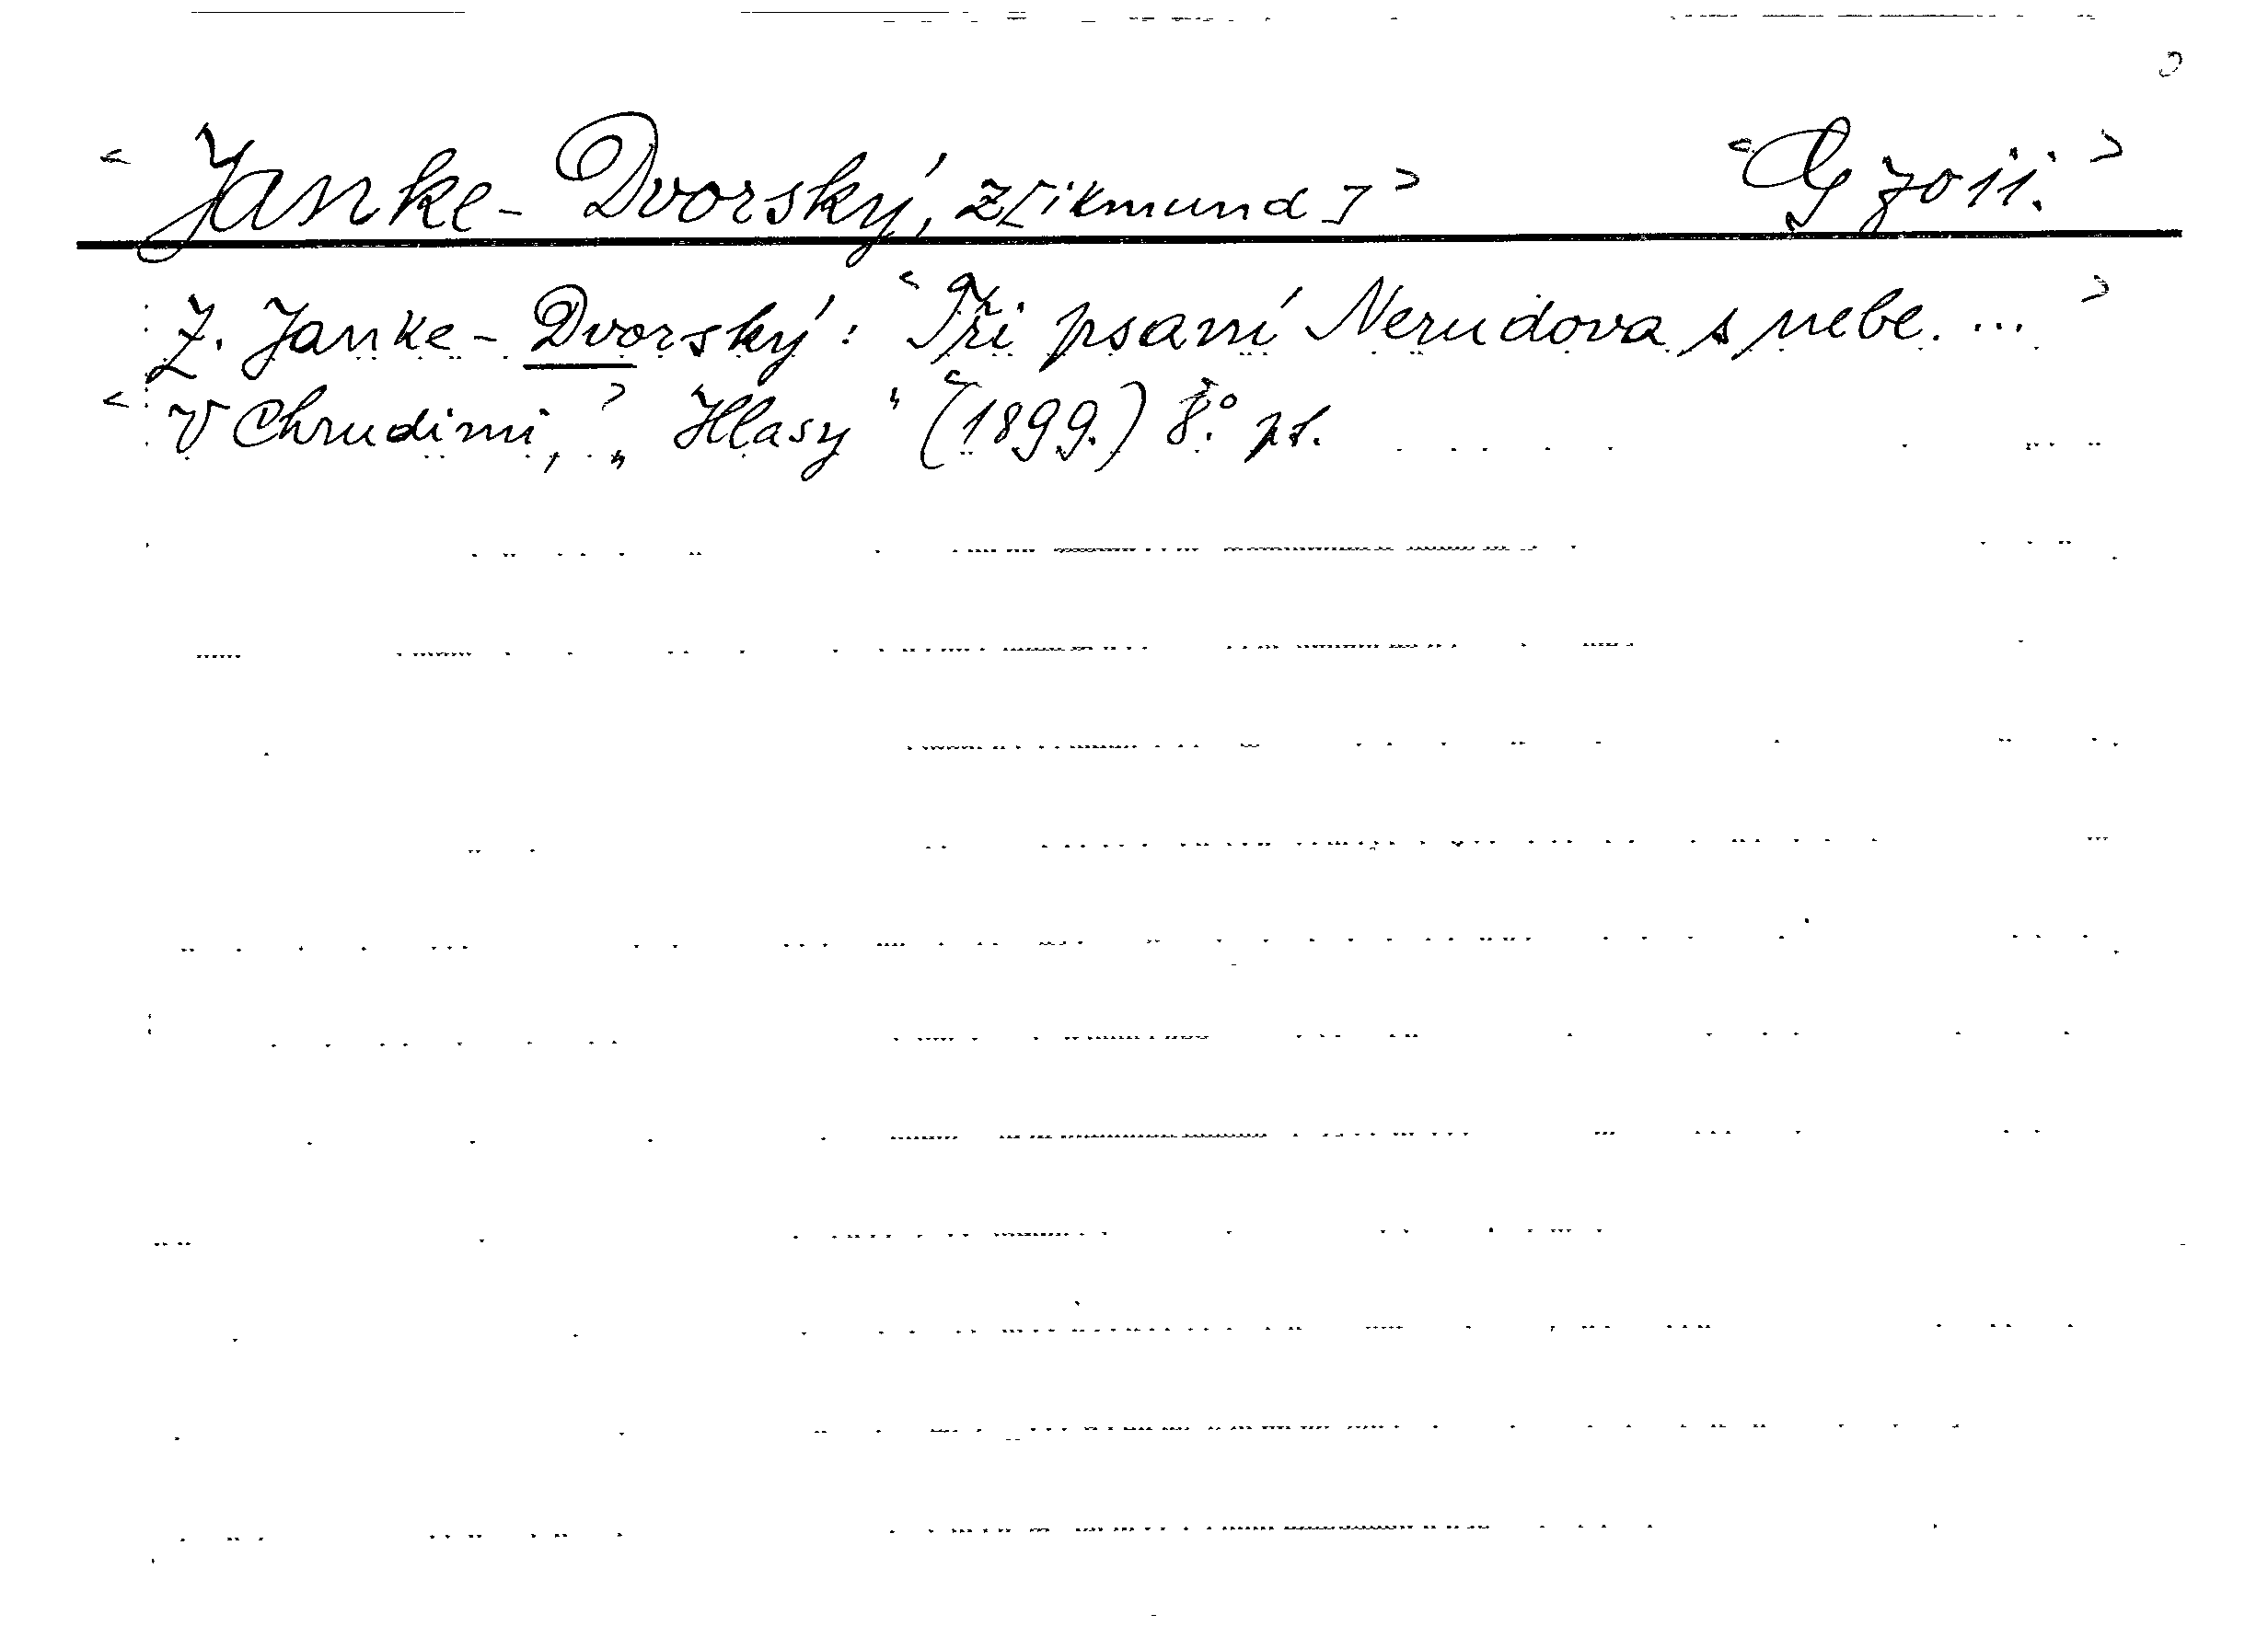 Janke-Dvorský, Z[ikmund]
Z. Janke-Dvorský: Tři psaní Nerudova s nebe. ...
V Chrudimi, „Hlasy“ (1899.) 8.°